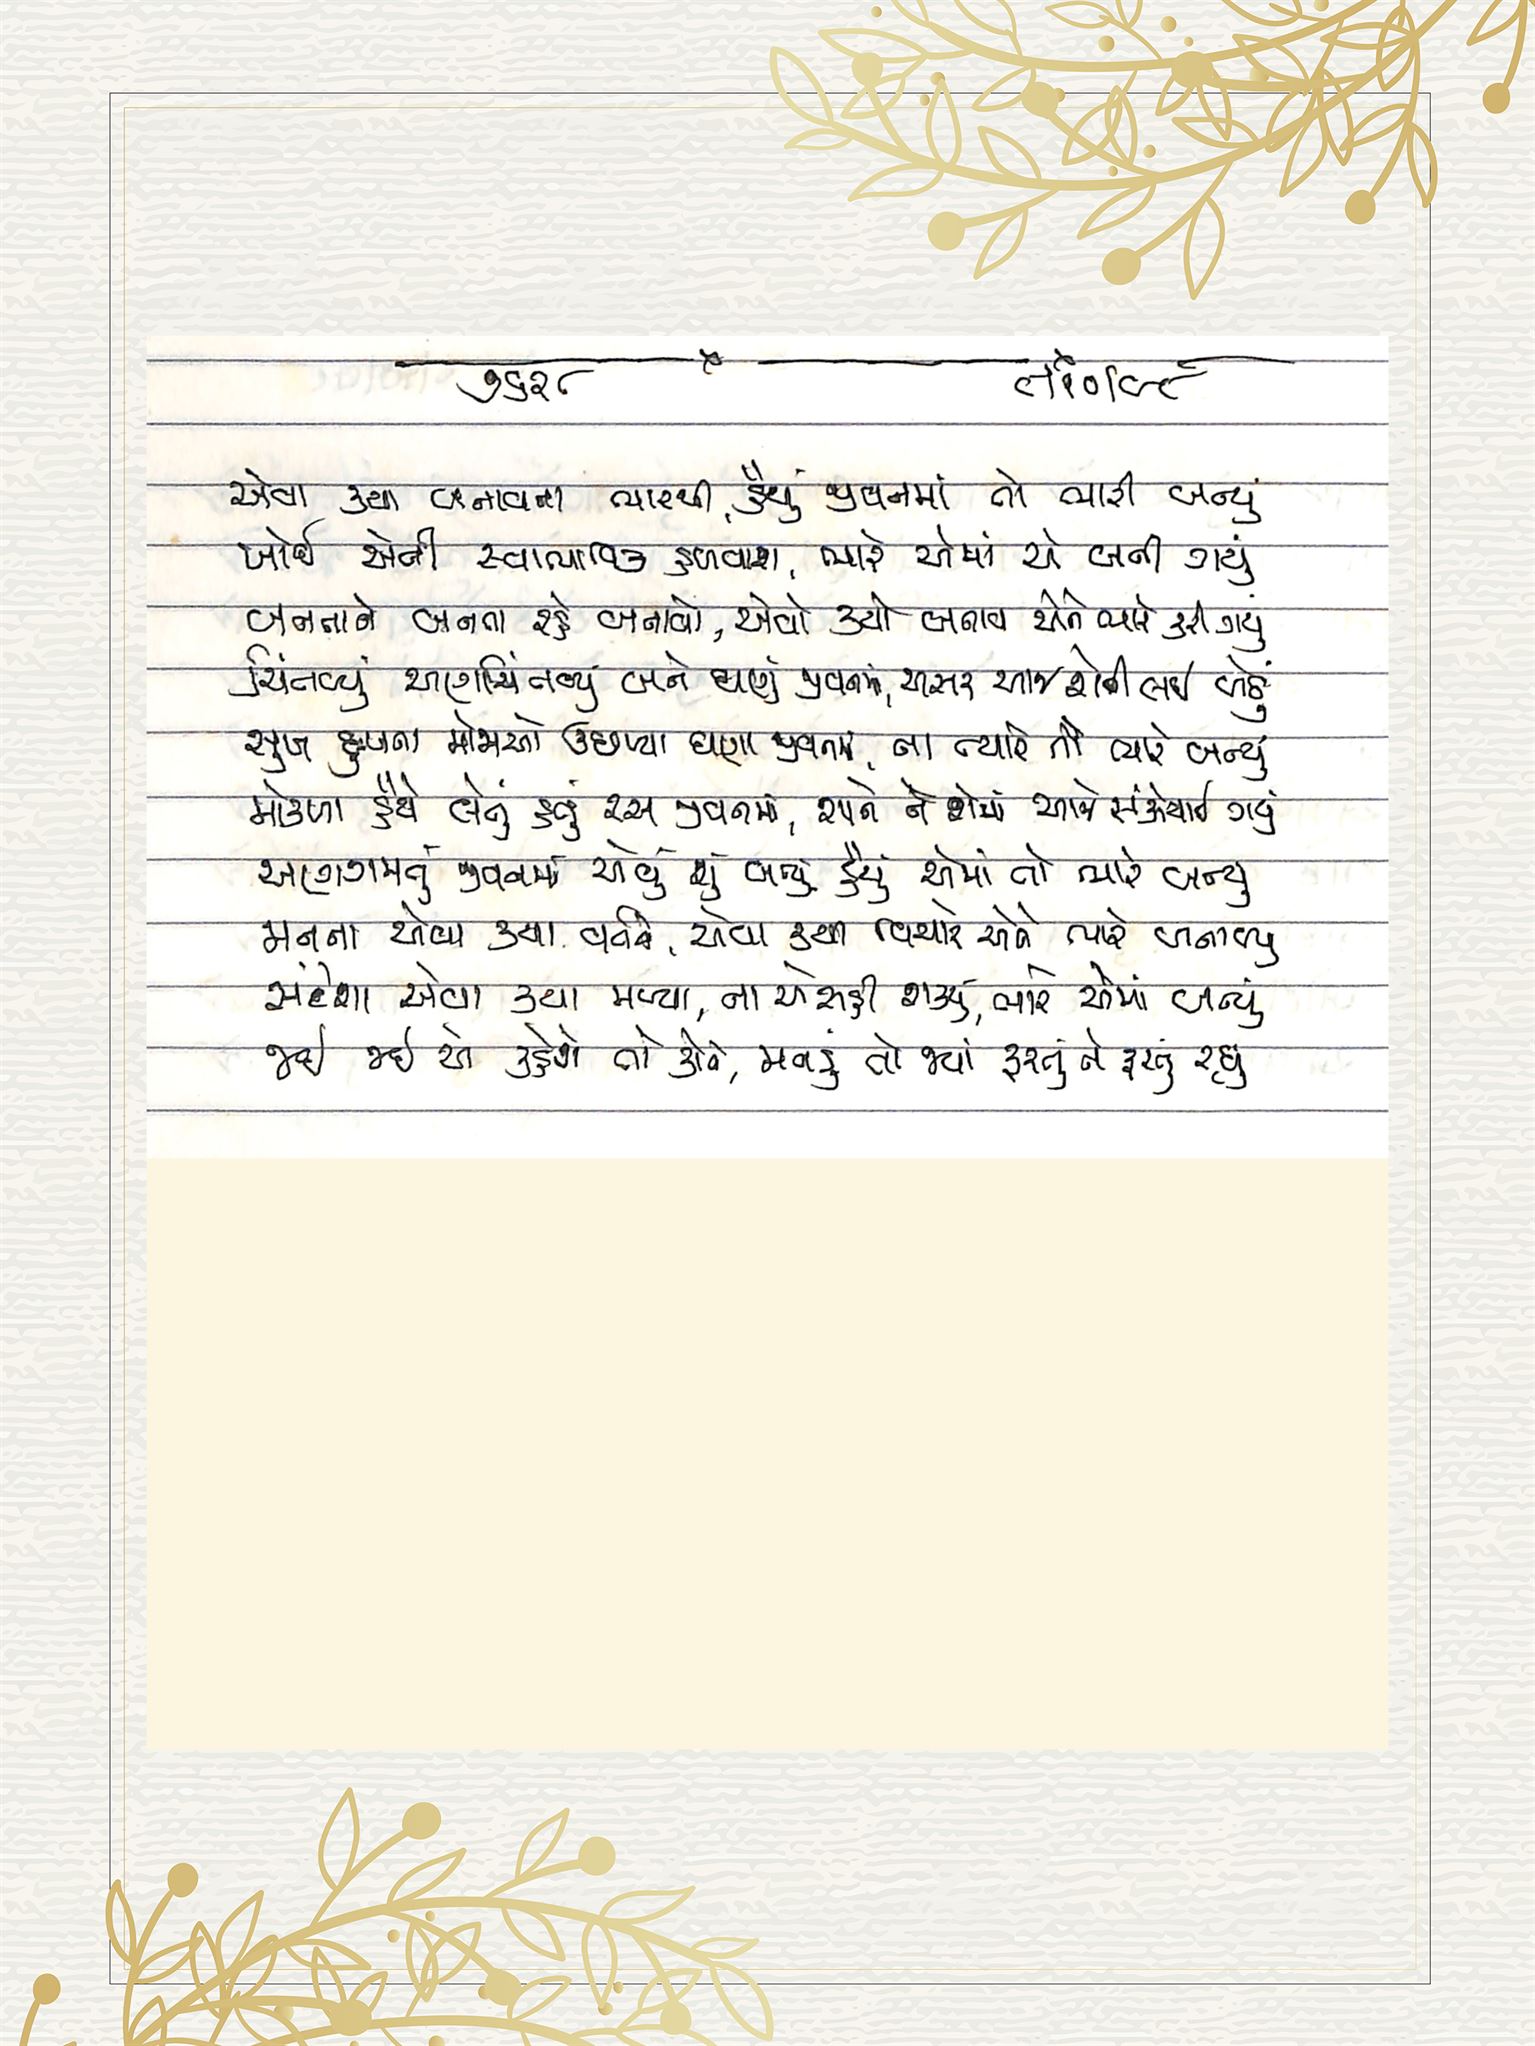 ૭૬૨૮
એવા કયા બનાવના ભારથી, હૈયું જીવનમાં તો ભારી બન્યું
ખોઈ એની સ્વાભાવિક હળવાશ, ભારે એમાં એ બની ગયું
બનનાને બનતા રહે બનાવો, એવો કયો બનાવ એને ભારે કરી ગયું
ચિંતવ્યું અણચિંતવ્યું બને ઘણું જીવનમાં, અસર આજ શેની લઈ બેઠું
સુખ દુઃખના મોજાઓ ઉછળ્યા ઘણા જીવનમાં, ના ત્યારે તો ભારે બન્યું
મોકળા હૈયે લેતું હતું રસ જીવનમાં, શાને ને શેમાં આજે સંકોચાઈ ગયું
અણગમતું જીવનમાં એવું શું બન્યું હૈયું એમાં તો ભારે બન્યુ
મનના એવા કયા વર્તને, એવા કયા વિચારે એને ભારે બનાવ્યુ
સંદેશા એવા કયા મળ્યા, ના એ સહી શક્યું, ભારે એમાં બન્યું
જઈ જઈ એ કહેશે તો કોને, મનડું તો જ્યાં ફરતું ને ફરતું રહ્યુ